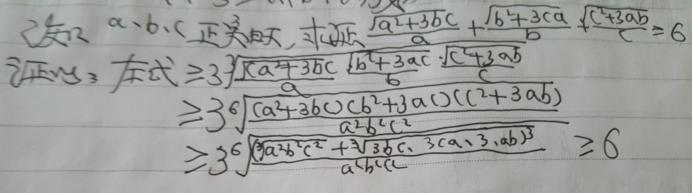 设 a、b、c 正实数, 求证 √(a²+3bc)/a + √(b²+3ca)/b + √(c²+3ab)/c ≥ 6
证明: 左式 ≥ 3 ∛(√(a²+3bc)/a · √(b²+3ac)/b · √(c²+3ab)/c)
≥ 3 ⁶√((a²+3bc)(b²+3ac)(c²+3ab)/a²b²c²)
≥ 3 ⁶√((∛a²b²c² + ∛3bc、3ca、3、ab)³/a²b²c²) ≥ 6